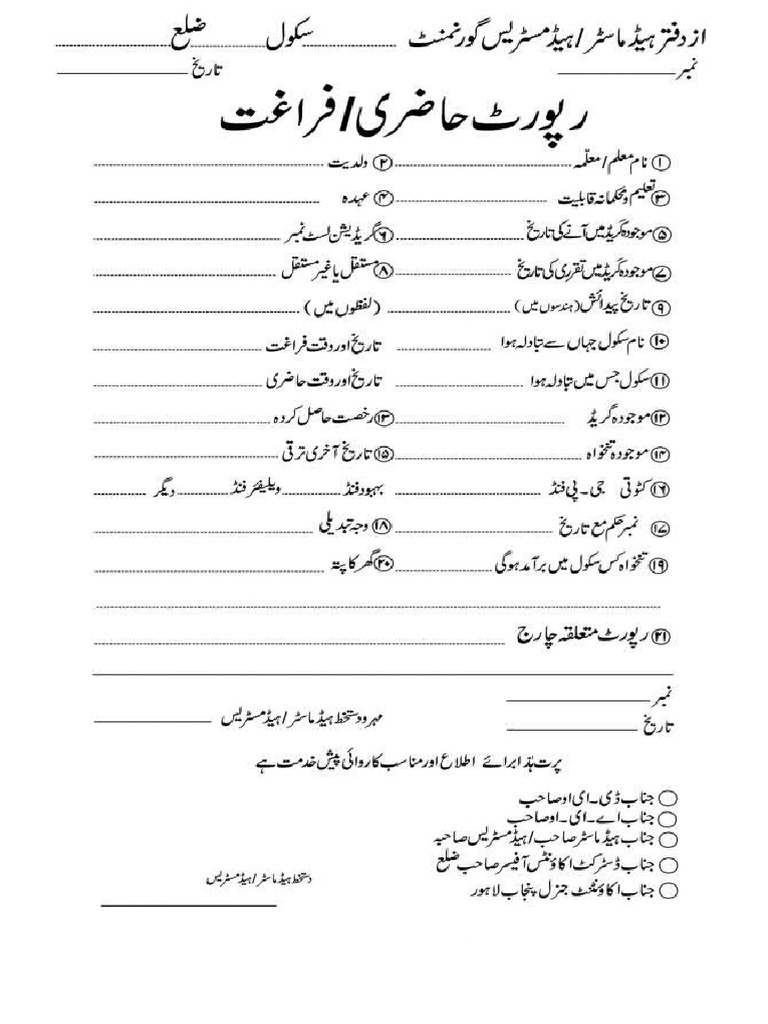 از دفتر ہیڈ ماسٹر / ہیڈ مسٹریس گورنمنٹ ............ سکول ............ ضلع ............
نمبر ____________ تاریخ ____________
رپورٹ حاضری / فراغت
۱ نام معلم / معلّمہ ............ ۲ ولدیت ............
۳ تعلیم و محکمانہ قابلیت ............ ۴ عہدہ ............
۵ موجودہ گریڈ میں آنے کی تاریخ ............ ۶ گریڈیشن لسٹ نمبر ............
۷ موجودہ گریڈ میں تقرری کی تاریخ ............ ۸ مستقل یا غیر مستقل ............
۹ تاریخ پیدائش (ہندسوں میں) ............ (لفظوں میں) ............
۱۰ نام سکول جہاں سے تبادلہ ہوا ............ تاریخ اور وقت فراغت ............
۱۱ سکول جس میں تبادلہ ہوا ............ تاریخ اور وقت حاضری ............
۱۲ موجودہ گریڈ ............ ۱۳ رخصت حاصل کردہ ............
۱۴ موجودہ تنخواہ ............ ۱۵ تاریخ آخری ترقی ............
۱۶ کٹوتی جی۔پی فنڈ ............ بہبود فنڈ ............ ویلفیئر فنڈ ............ دیگر ............
۱۷ نمبر حکم مع تاریخ ............ ۱۸ وجہ تبدیلی ............
۱۹ تنخواہ کس سکول میں برآمد ہوگی ............ ۲۰ گھر کا پتہ ............
۲۱ رپورٹ متعلقہ چارج ............
نمبر ____________
تاریخ ____________ مہر و دستخط ہیڈ ماسٹر / ہیڈ مسٹریس ____________
پرت ہذا برائے اطلاع اور مناسب کاروائی پیش خدمت ہے
جناب ڈی۔ای او صاحب
جناب اے۔ای۔او صاحب
جناب ہیڈ ماسٹر صاحب / ہیڈ مسٹریس صاحبہ
جناب ڈسٹرکٹ اکاؤنٹس آفیسر صاحب ضلع
دستخط ہیڈ ماسٹر / ہیڈ مسٹریس
جناب اکاؤنٹنٹ جنرل پنجاب لاہور